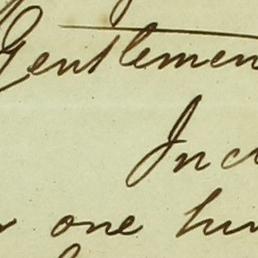 Gentlemen
Inc
one hun